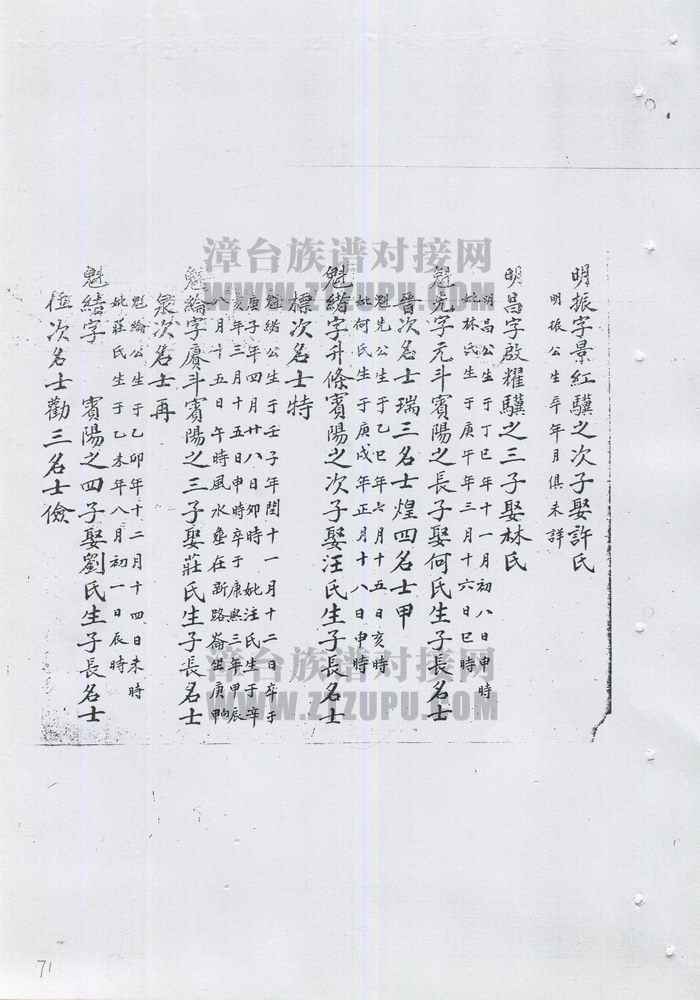 明振字景紅驥之次子娶許氏
明振公生卒年月俱未詳
明昌字啟耀驥之三子娶林氏
明昌公生于丁巳年十一月初八日申時
妣林氏生于庚午年三月十六日巳時
魁光字元斗賓陽之長子娶何氏生子長名士
晉次名士瑞三名士煌四名士甲
魁光公生于乙巳年七月十五日亥時
妣何氏生于庚戌年正月十八日申時
魁緒字升條賓陽之次子娶汪氏生子長名士
標次名士特
魁緒公生于壬子年閏十一月十二日卒于
庚子年四月廿八日卯時 妣汪氏生于辛
亥年三月十五日申時卒于康熙三年甲辰
八月十五日午時風水塋在新路崙坐庚向甲
魁綸字賡斗賓陽之三子娶莊氏生子長名士
衆次名士再
魁綸公生于乙卯年十二月十四日未時
妣莊氏生于乙未年八月初一日辰時
魁結字 賓陽之四子娶劉氏生子長名士
位次名士勸三名士儉
漳台族谱对接网
WWW.ZTZUPU.COM
漳台族谱对接网
WWW.ZTZUPU.COM
71